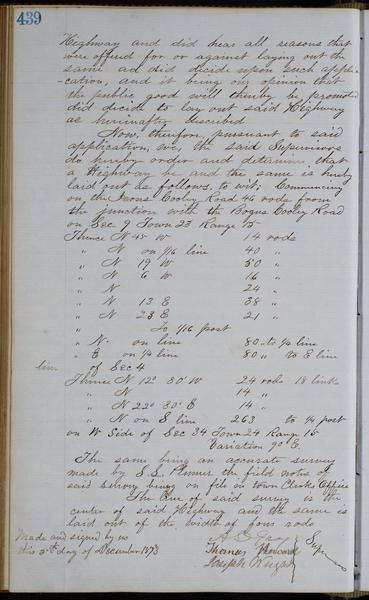 439
Highway and did hear all reasons that
were offered for or against laying out the
same and did decide upon such appli-
cation, and it being our opinion that
the public good will thereby be promoted
did decide to lay out said Highway
as hereinafter described
Now, therefore, pursuant to said
application, we, the said Supervisors
do hereby order and determine, that
a Highway be and the same is hereby
laid out as follows, to wit; Commencing
on the Cooley Road 46 rods from
the junction with the Bogus Cooley Road
on Sec 9 Town 23 Range 15
Thence N 45 W 14 rods
" N on 1/16 line 40 "
" N 19 W 50 "
" N 6 W 16 "
" N 24 "
" N 13 E 38 "
" N 23 E 21 "
" To 1/16 post
" N. on line 80 to 1/4 line
" E on 1/4 line 80 " to E line
line of Sec 4
Thence N 12° 30' W 24 rods 18 links
" N 14 "
" N 22° 30' E 14 "
" N on S line 263 to 1/4 post
on W Side of Sec 34 Town 24 Range 15
Variation 9° E.
The same being an accurate survey
made by S. S. the field notes of
said survey being on file in town Clerks Office
The line of said survey is the
center of said Highway and the same is
laid out of the width of four rods
Made and signed by us
this 5th day of December 1873
Thomas
Joseph
Supervisors